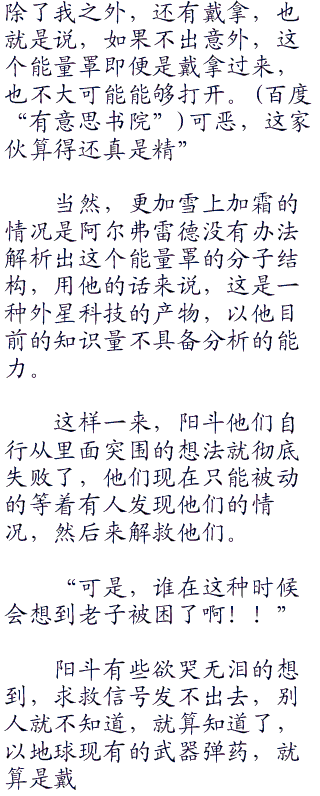 除了我之外，还有戴拿，也
就是说，如果不出意外，这
个能量罩即便是戴拿过来，
也不大可能能够打开。(百度
“有意思书院”)可恶，这家
伙算得还真是精”
当然，更加雪上加霜的
情况是阿尔弗雷德没有办法
解析出这个能量罩的分子结
构，用他的话来说，这是一
种外星科技的产物，以他目
前的知识量不具备分析的能
力。
这样一来，阳斗他们自
行从里面突围的想法就彻底
失败了，他们现在只能被动
的等着有人发现他们的情
况，然后来解救他们。
“可是，谁在这种时候
会想到老子被困了啊！！”
阳斗有些欲哭无泪的想
到，求救信号发不出去，别
人就不知道，就算知道了，
以地球现有的武器弹药，就
算是戴